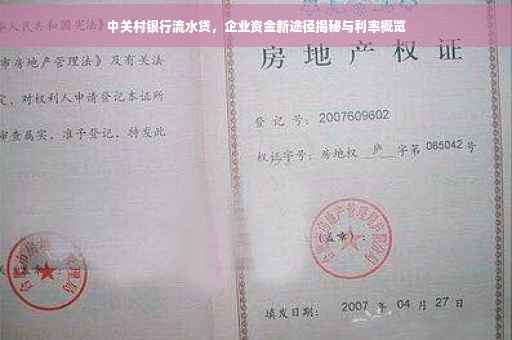 中关村银行流水贷，企业资金新途径揭秘与利率概览
人民共和国宪法》
市房地产管理法》及有关法
定，对权利人申请登记本证所
审查属实，准予登记，特发此
房地产权证
登记号：2007609602
权证字号：房地权 庐 字第 085042 号
房地产管理局
(盖章)：
填发日期： 2007 年 04 月 27 日